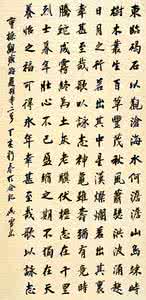 東臨碣石以觀滄海水何澹澹山島竦峙
樹木叢生百草豐茂秋風蕭瑟洪波涌起
日月之行若出其中星漢燦爛若出其裏
幸甚至哉歌以詠志神龜雖壽猶有竟時
騰蛇乘霧終為土灰老驥伏櫪志在千里
烈士暮年壯心不已盈縮之期不但在天
養怡之福可得永年幸甚至哉歌以詠志
曹操觀滄海龜雖壽二首